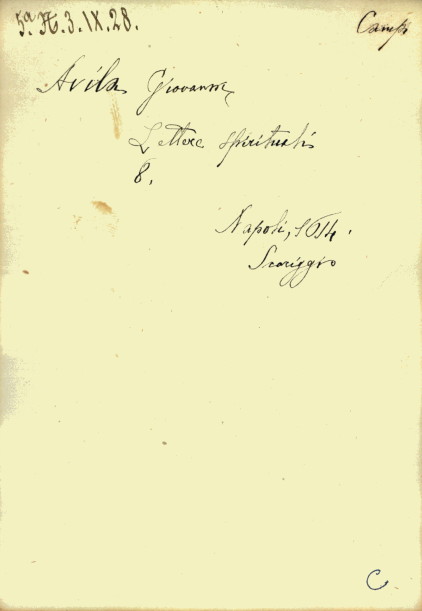 5ª A.3.IX.28.
Camp.
Avila Giovanni
Lettere spirituali
8.
Napoli, 1614.
Scoriggio
C